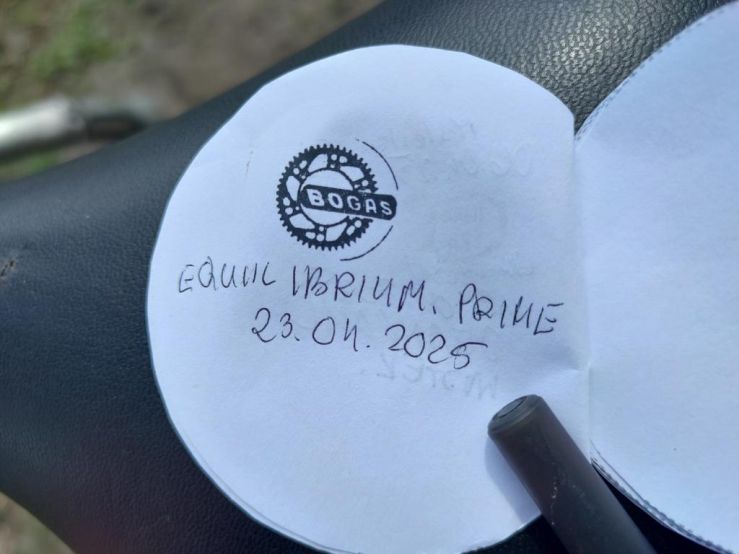 BOGAS
EQUILIBRIUM. PRIME
23.04.2025